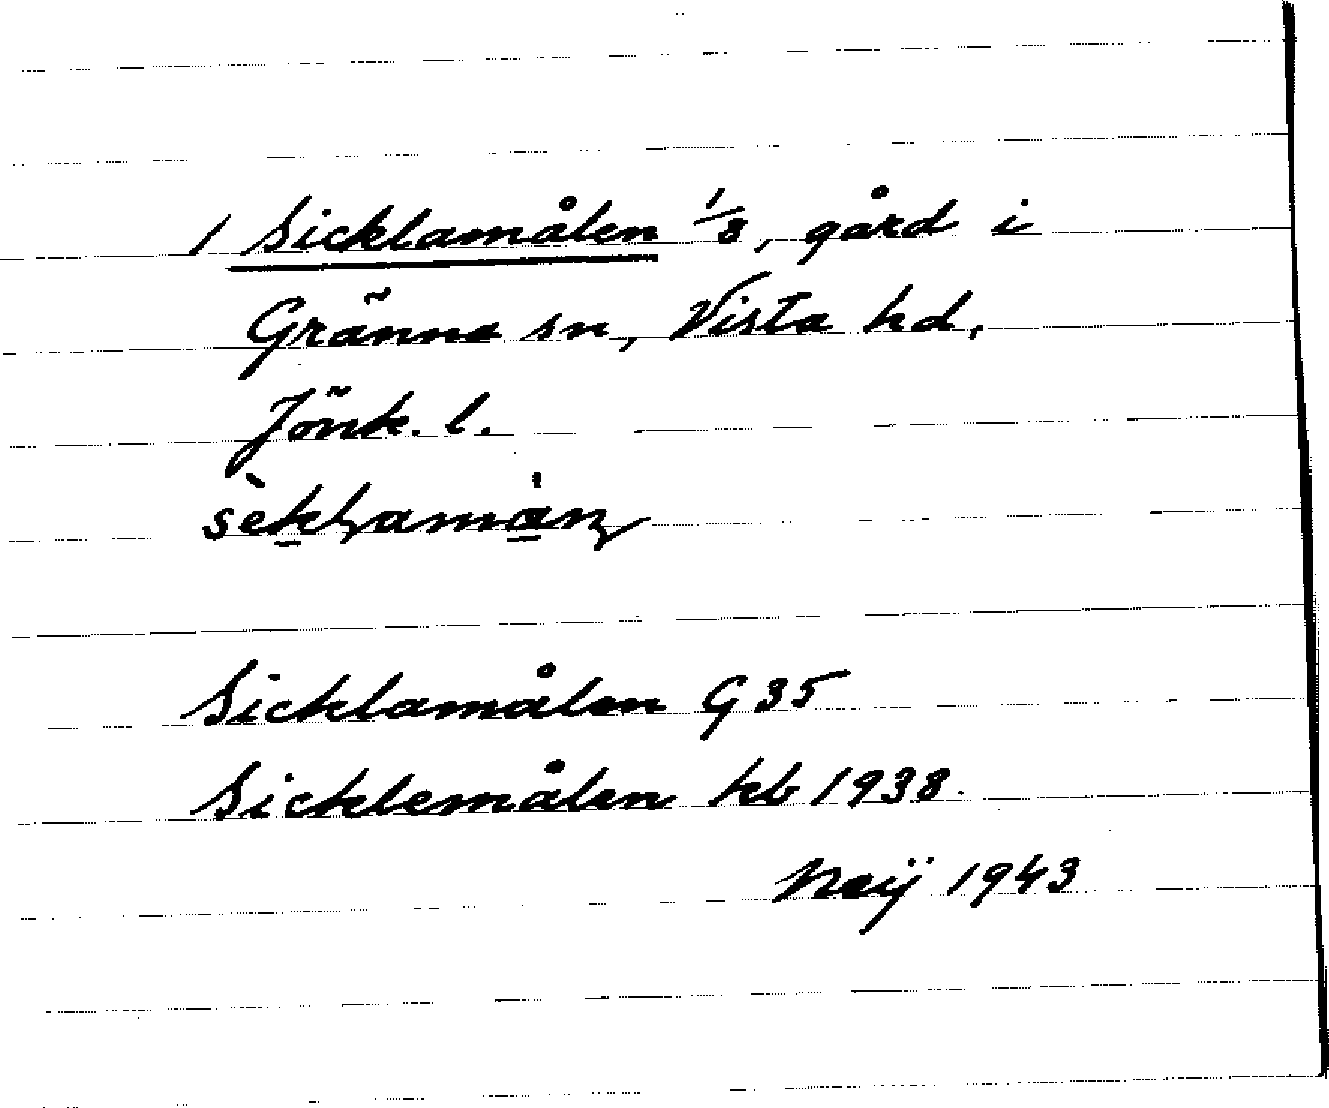 / Sicklamålen 1/8, gård i
Gränna sn, Vista hd,
Jönk. l.
Sicklamålen G 35
Sicklemålen kb 1938.
Neij 1943